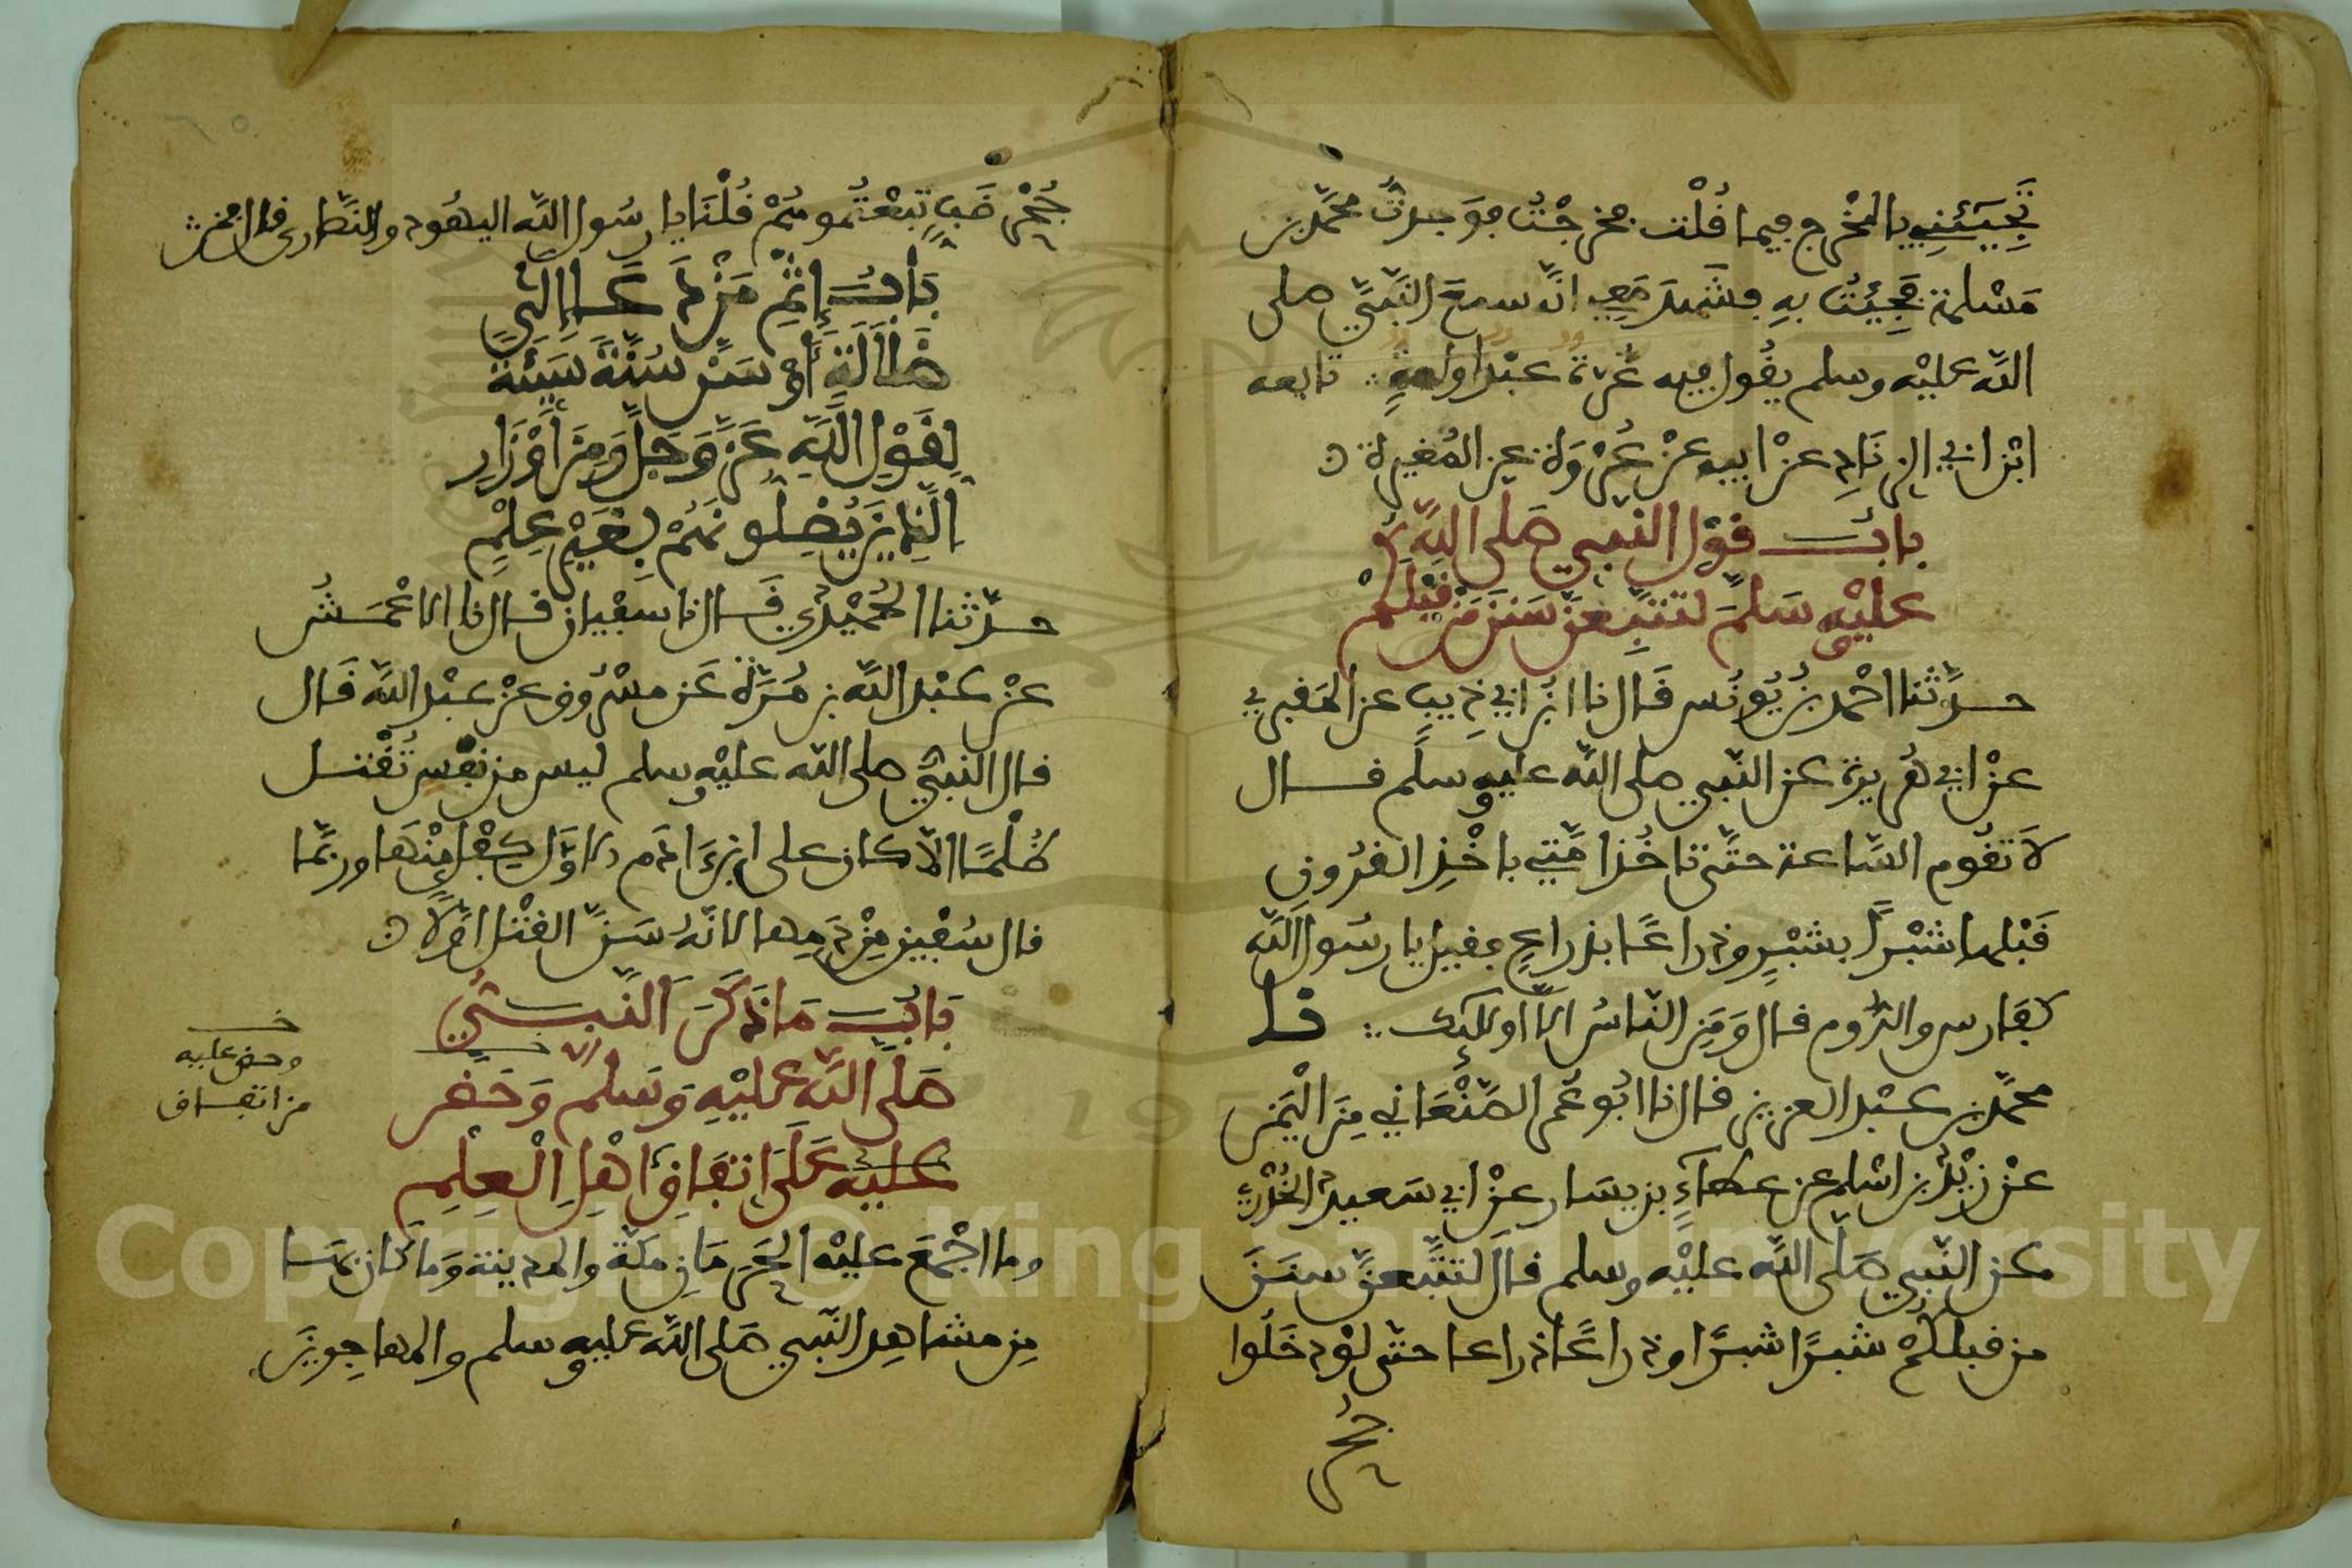 تجيئني بالمخرج فيما قلت فخرجت فوجدت محمد بن
مسلمة فجئت به فشهد معي انه سمع النبي صلى
الله عليه وسلم يقول فيه غرة عبد او امة تابعه
ابن ابي الزناد عن ابيه عن عروة عن المغيرة
باب قول النبي صلى الله
عليه وسلم لتتبعن سنن من قبلكم
حدثنا احمد بن يونس قال نا ابن ابي ذيب عن المقبري
عن ابي هريرة عن النبي صلى الله عليه وسلم قال
لا تقوم الساعة حتى تاخذ امتي باخذ القرون
قبلها شبرا بشبر وذراعا بذراع فقيل يا رسول الله
كفارس والروم قال ومن الناس الا اوليك نا
محمد بن عبد العزيز قال نا ابو عمر الصنعاني من اليمن
عن زيد بن اسلم عن عطاء بن يسار عن ابي سعيد الخدري
عن النبي صلى الله عليه وسلم قال لتتبعن سنن
من قبلكم شبرا شبرا وذراعا ذراعا حتى لو دخلوا
جحر
جحر ضب تبعتموهم قلنا يا رسول الله اليهود والنصارى قال فمن
باب اثم من دعا الى
ضلالة او سن سنة سيئة
لقول الله عز وجل ومن اوزار
الذين يضلونهم بغير علم
حدثنا الحميدي قال نا سفيان قال نا الاعمش
عن عبد الله بن مرة عن مسروق عن عبد الله قال
قال النبي صلى الله عليه وسلم ليس من نفس تقتل
ظلما الا كان على ابن ادم الاول كفل منها وربما
قال سفين من دمها لانه سن القتل اولا
باب ما ذكر النبي
صلى الله عليه وسلم وحض
عليه على اتفاق اهل العلم
وحض عليه
من اتفاق
وما اجمع عليه الحرمان مكة والمدينة وما كان بهما
من مشاهد النبي صلى الله عليه وسلم والمهاجرين
Copyright © King Saud University